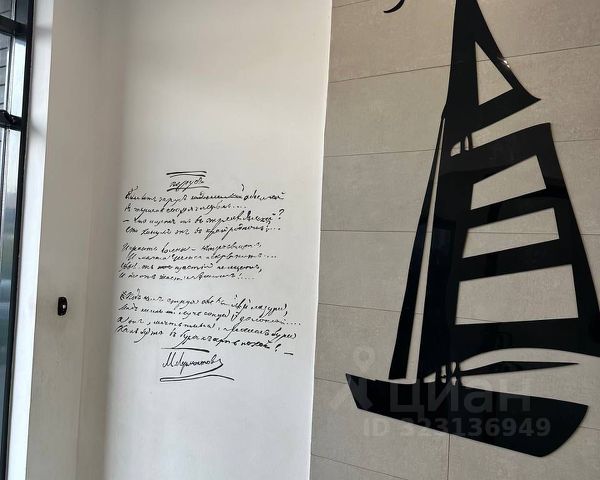 Парусъ
Бѣлѣетъ парусъ одинокой
Въ туманѣ моря голубомъ....
— Что ищетъ онъ въ странѣ далекой?
Что кинулъ онъ въ краю родномъ?....
Играютъ волны — вѣтеръ свищетъ,
И мачта гнется и скрыпитъ....
Увы! онъ счастія не ищетъ,
И не отъ счастія бѣжитъ! —
Подъ нимъ струя свѣтлѣй лазури,
Надъ нимъ лучъ солнца золотой....
А онъ, мятежный, проситъ бури,
Какъ будто въ буряхъ есть покой! —
М. Лермонтовъ
циан
ID 323136949